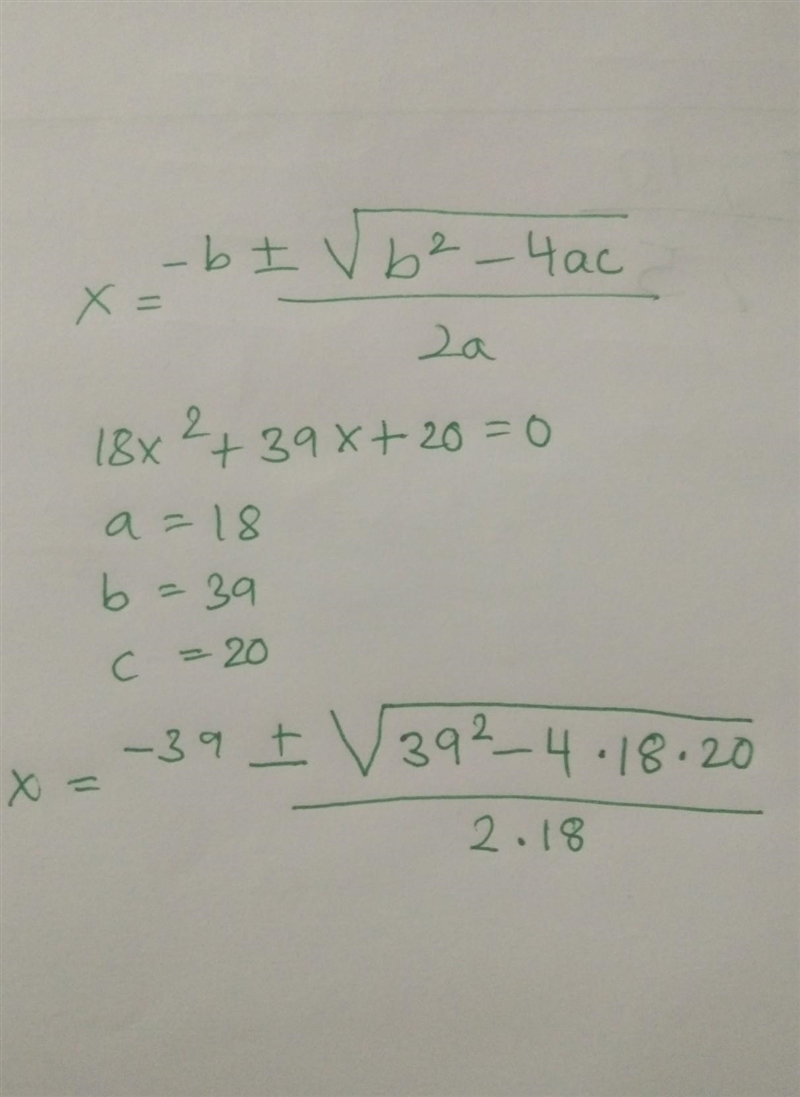 x = -b ± √(b² - 4ac) / 2a
18x² + 39x + 20 = 0
a = 18
b = 39
c = 20
x = -39 ± √(39² - 4 · 18 · 20) / 2 · 18